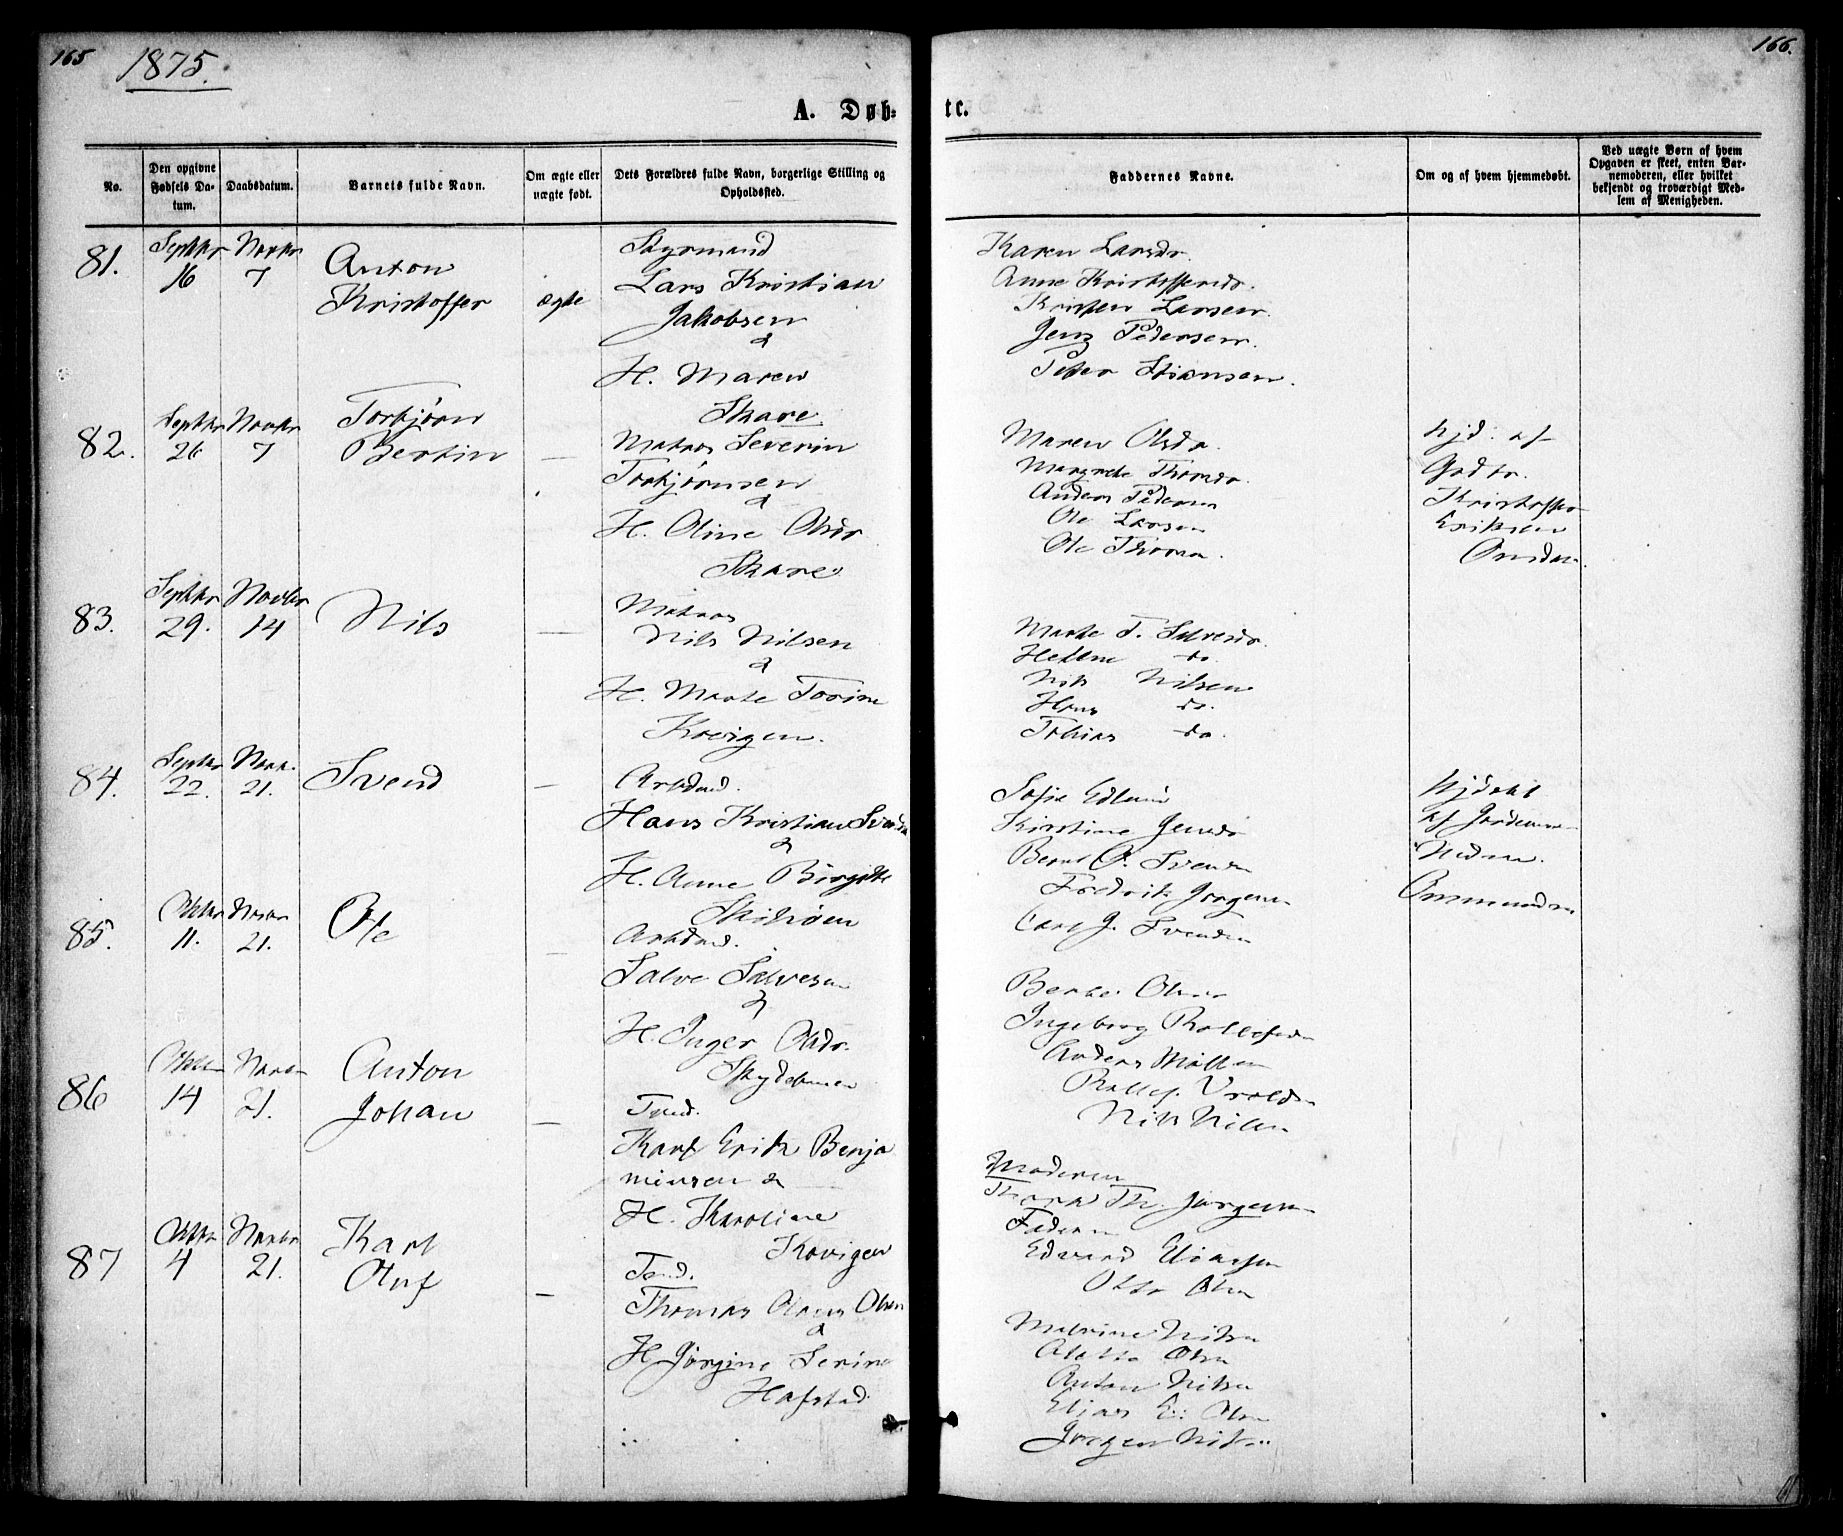 165
1875.
166.
A. Døb-
te.
No.
Den opgivne Fødsels Datum.
Daabsdatum.
Barnets fulde Navn.
Om ægte eller uægte født.
Dets Forældres fulde Navn, borgerlige Stilling og Opholdssted.
Faddernes Navne.
Om og af hvem hjemmedøbt.
Ved uægte Børn af hvem Opgaven er skeet, enten Barnemoderen, eller hvilket bekjendt og troværdigt Medlem af Menigheden.
81.
Septbr 16
Novbr 7
Anton
Kristoffer
ægte
Styrmand
Lars Kristian
Jakobsen
&
H. Maren
Skare
Karen Larsdr.
Anne Kristoffersdr.
Kristen Larsen.
Jens Pedersen.
Peter
82.
Septbr 26
Novbr 7
Torbjørn
Bertin
—
Matros Severin
Torbjørnsen
&
H. Oline Olsdr
Skare
Maren Olsdr.
Margrethe Thomdr.
Anders Pedersen
Ole Larsen
Ole Thomsen.
hjd. af
Kristoffer
Eriksen
83.
Septbr 29.
Novbr 14
Nils
—
Matros
Nils Nilsen
&
H. Marte Torine
Kovigen.
Marte T. Salvesdr.
Hellene do.
Nils Nilsen
Hans do.
Tobias do.
84.
Septbr 22.
Novbr. 21.
Svend
—
Arbdmd.
Hans Kristian Svends
&
H. Anne Birgitte
Sofie Edlund
Kirstine Jensdr
Bernt O. Svends
Fredrik Jørgensen
Carl J. Svendsen
hjdøbt
af Jordemor
85.
Oktbr 11.
Novbr 21.
Ole
—
Arbdmd.
Salve Salvesen
&
H. Inger Olsdr.
Berte Olsdr
Ingeborg
Anders
Nils Nilsen
86
Oktbr 14
Novbr 21.
Anton
Johan
—
Tmd.
Karl Erik Benja
minsen &
H. Karoline
Kovigen
Moderen
Th. Jørgensen
Faderen
Edvard Eliassen
Otto Olsen
87
Oktbr 4
Novbr 21.
Karl
Oluf
—
Tmd.
Thomas Olaus Olsen
&
H. Jørgine Serine
Hafstad
Nilsen
Olsen
Anton Nilsen
Elias E. Olsen
Jørgen Nilsen